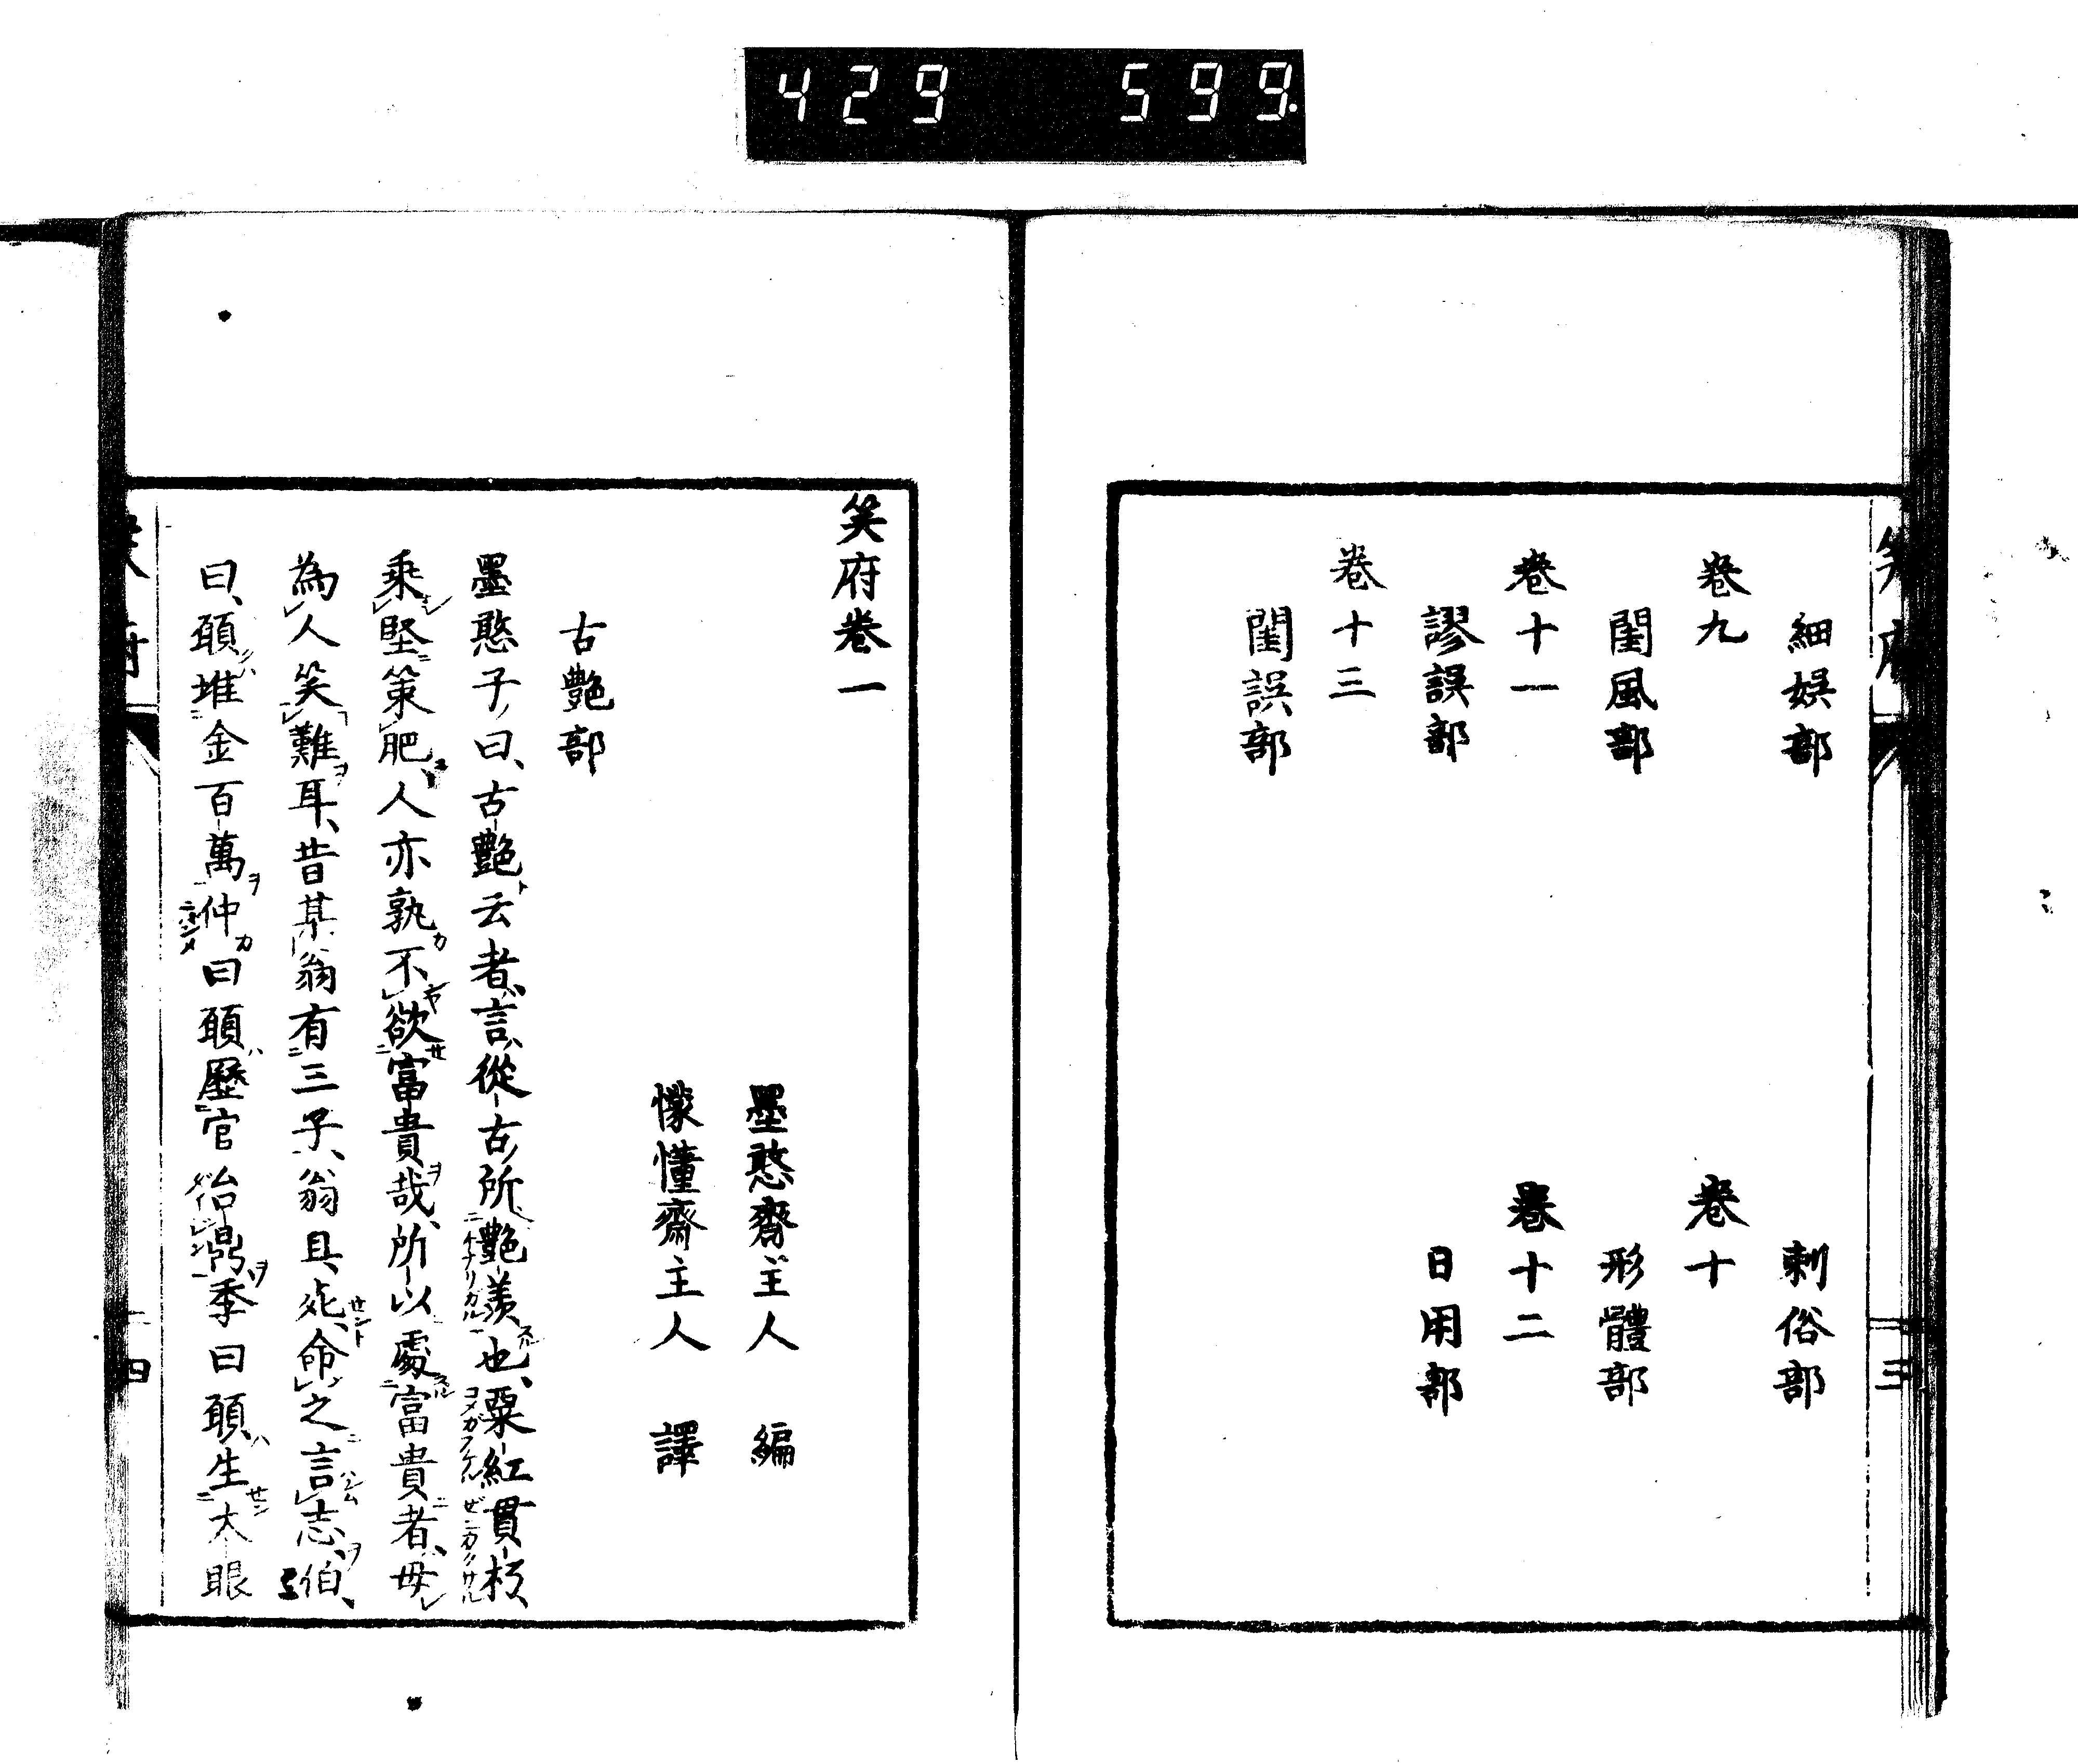 429 599.
細娯部
刺俗部
卷九
卷十
閨風部
形體部
卷十一
卷十二
謬誤部
日用部
卷十三
閨誤部
笑府
三
笑府卷一
墨憨齋主人 編
懞懂齋主人 譯
古艷部
墨憨子曰、古艷云者、言從古所艷羨也、粟紅貫朽、
乘堅策肥、人亦孰不欲富貴哉、所以處富貴者、毋
為人笑難耳、昔某翁有三子、翁且死、命之言志、伯
曰、願堆金百萬仲曰願歷官台鼎季曰願生大眼
四